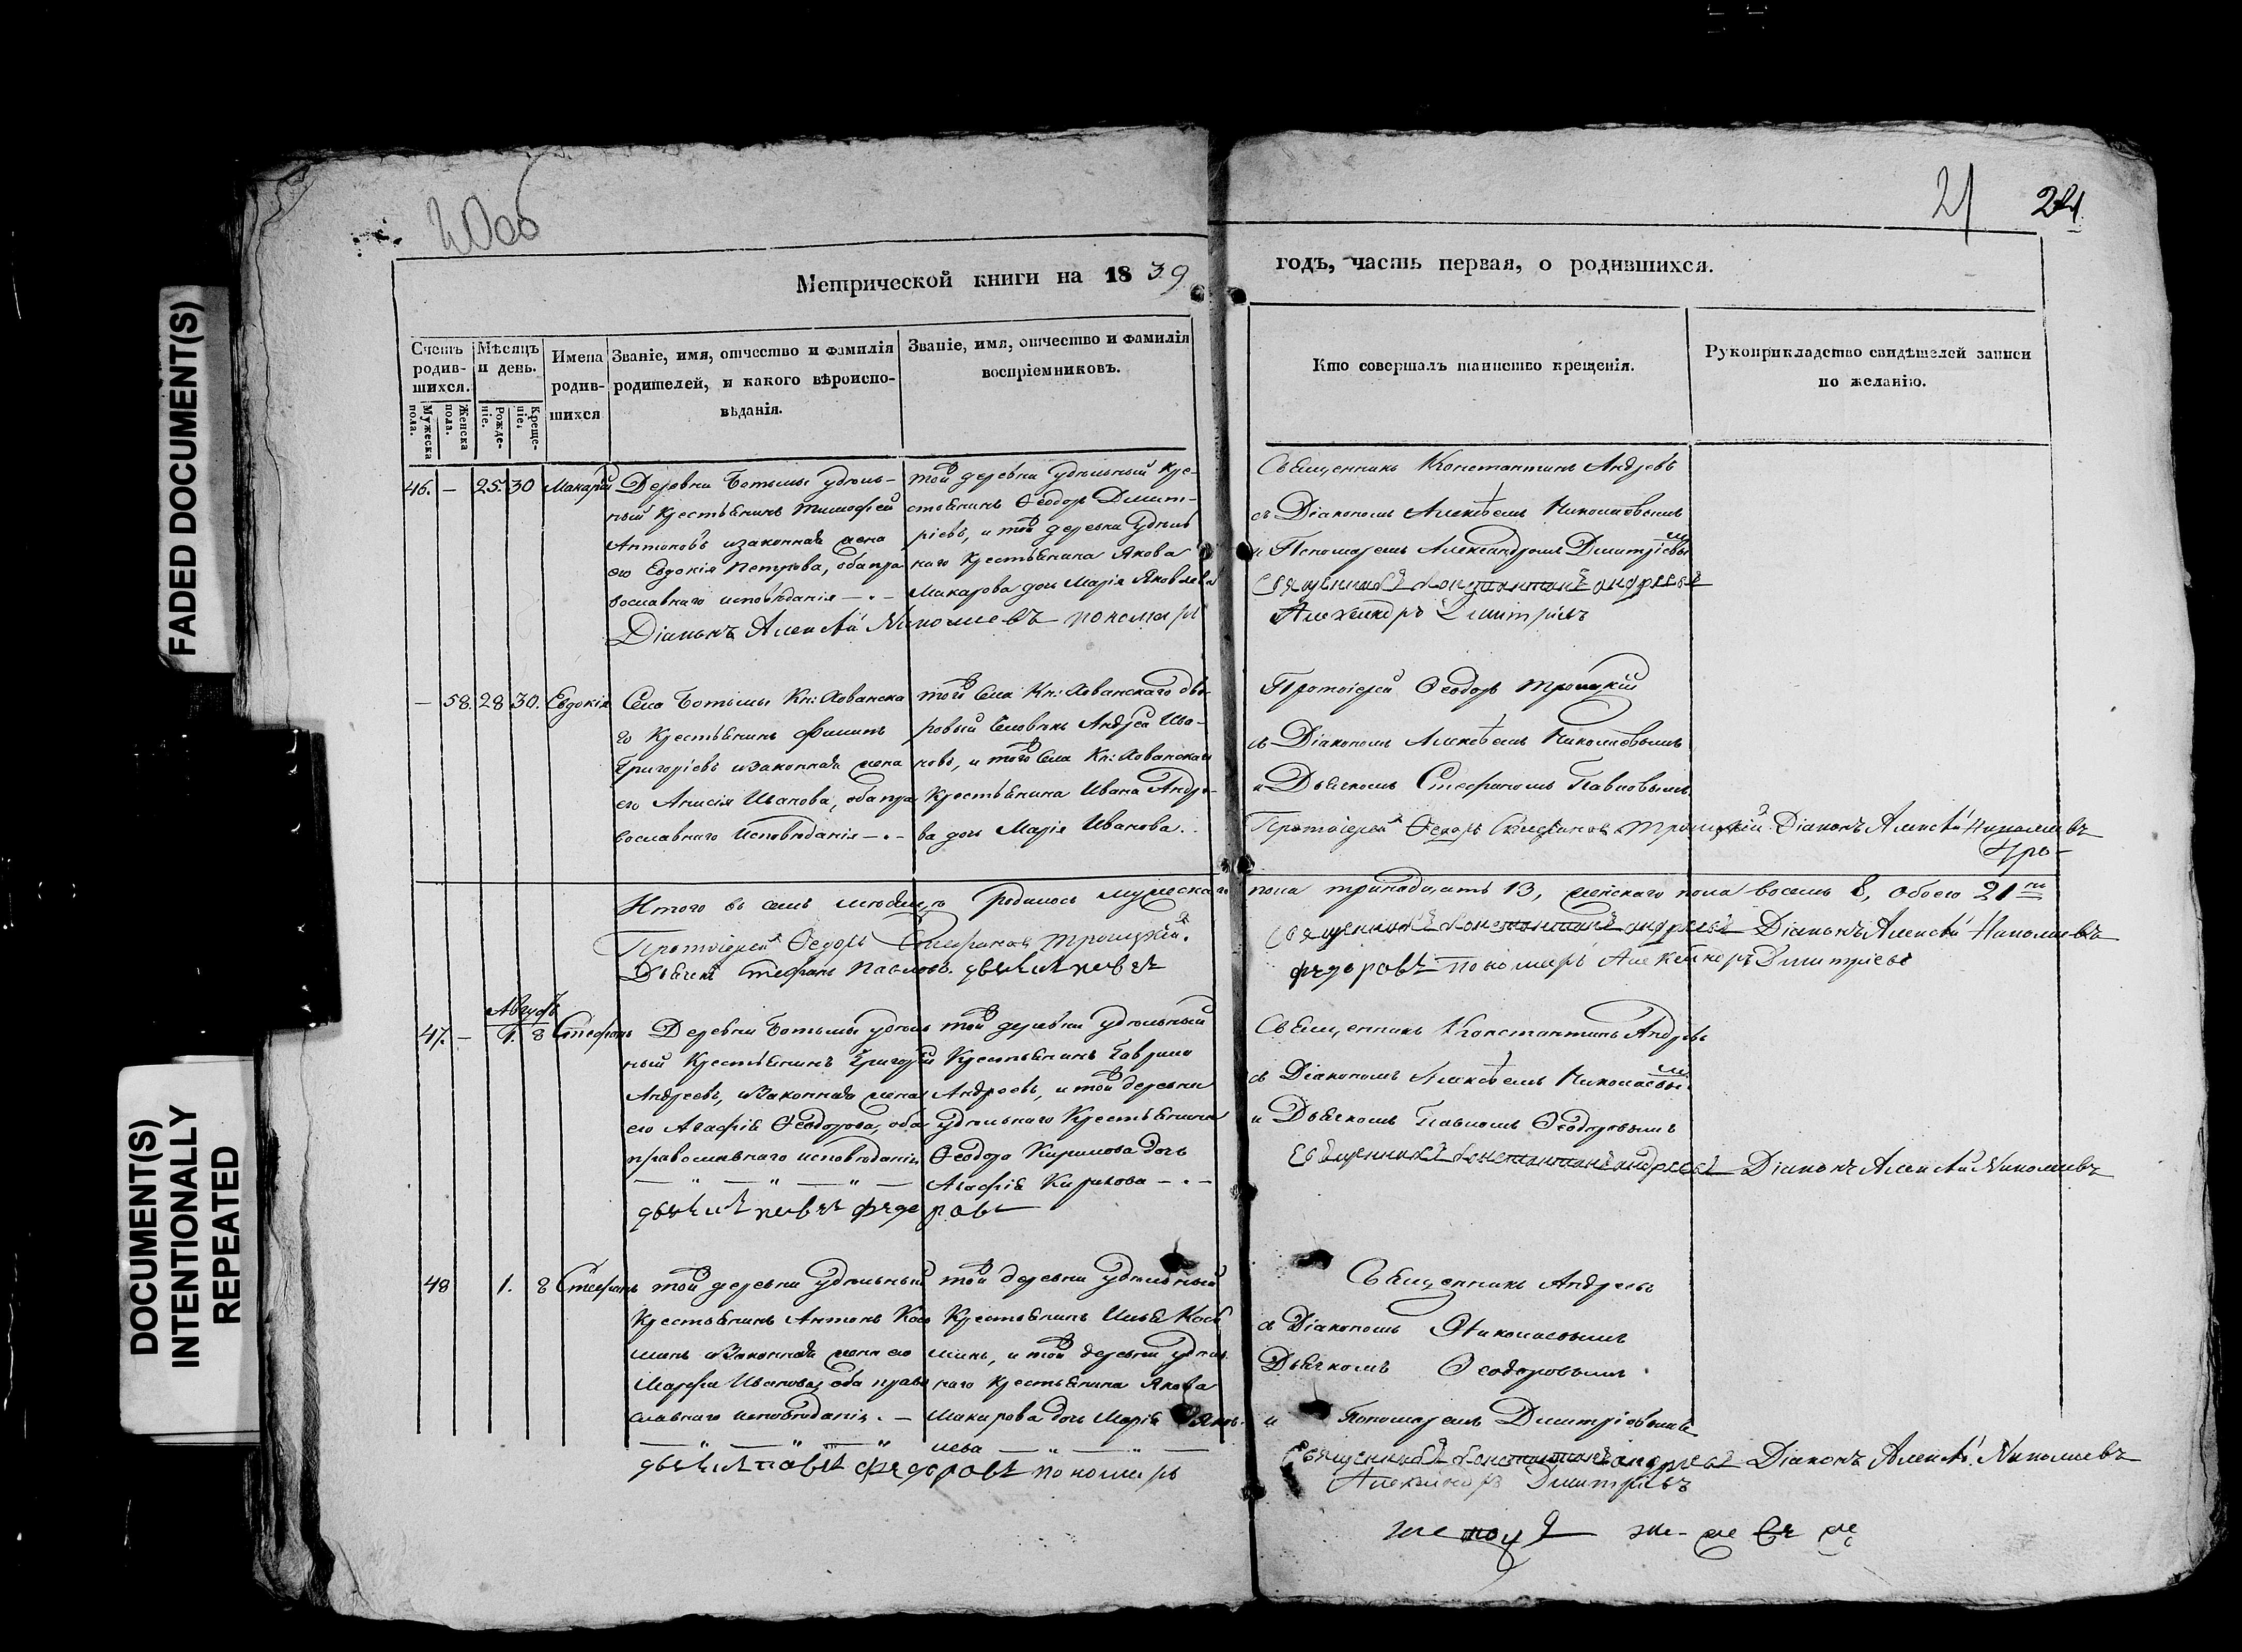 FADED DOCUMENT(S)
DOCUMENT(S)
INTENTIONALLY
REPEATED
20об
21
24
Метрической книги на 1839
годъ, часть первая, о родившихся.
Счетъ родившихся.
Мужеска пола.
Женска пола.
Мѣсяцъ и день.
Рожденіе.
Крещеніе.
Имена родившихся
Званіе, имя, отчество и фамилія
родителей, и какого вѣроиспо-
вѣданія.
Званіе, имя, отчество и фамилія
воспріемниковъ.
Кто совершалъ таинство крещенія.
Рукоприкладство свидѣтелей записи
по желанію.
46. – 25. 30 Макарій
Деревни Ботьмы удѣль-
ный Крестьянинъ Тимофей
Антоновъ и законная жена
его Евдокія Петрова, оба пра
вославнаго исповѣданія
той деревни удѣльный Кре-
стьянинъ Ѳеодоръ Димит-
ріевъ, и той деревни Удѣль
наго Крестьянина Якова
Макарова дочь Марія Яковлева
Священникъ Константинъ Андреевъ
съ Діакономъ Алексѣемъ Николаевымъ
и Пономаремъ Александромъ Димитріевым
Священникъ Константинъ Андреевъ
Діаконъ Алексѣй Николаевъ пономарь
Александръ Димитріевъ
– 58. 28 30. Евдокія
Села Ботьмы Кн: Хованска
го Крестьянинъ Филипъ
Григорьевъ и законная жена
его Анисія Иванова, оба пра
вославнаго Исповѣданія
того Села Кн: Хованскаго дво-
ровый Человѣкъ Андрей Ива-
новъ, и того Села Кн: Хованскаго
Крестьянина Ивана Андре-
ва дочь Марія Иванова.
Протоіерей Ѳеодоръ Троицкій
съ Діакономъ Алексѣемъ Николаевымъ
и Дьячкомъ Стефаномъ Павловымъ
Протоіерей Ѳедоръ Стефановъ Троицкій. Діаконъ Алексѣй Николаевъ
Итого въ семъ мѣсяцѣ родилось мужескаго пола тринадцать 13, женскаго пола восемь 8, обоего 21
Протоіерей Ѳедоръ Стефановъ Троицкій.
Священникъ Константинъ Андреевъ Діаконъ Алексѣй Николаевъ
Дьячекъ Стефанъ Павловъ. дьячикъ павелъ
федоровъ пономарь Александръ Димитріевъ
Августъ
47. – 1. 8 Стефанъ
Деревни Ботьмы удѣль
ный Крестьянинъ Григорій
Андреевъ, и Законная жена
его Агафія Ѳеодорова, оба
православнаго исповѣданія
той деревни удѣльный
Крестьянинъ Гаврила
Андреевъ, и той деревни
удѣльнаго Крестьянина
Ѳеодора Кирилова дочь
Агафія Кирилова
Священникъ Константинъ Андреевъ
съ Діакономъ Алексѣемъ Николаевым
и Дьячкомъ Павломъ Ѳеодоровымъ
Священникъ Константинъ Андреевъ Діаконъ Алексѣй Николаевъ
дьячикъ павелъ федоровъ
48 1. 8 Стефанъ
той деревни Удѣльный
Крестьянинъ Антонъ Кось
минъ и Законная жена его
Марфа Иванова, оба право
славнаго исповѣданія.
той деревни Удѣльный
Крестьянинъ Илья Кось
минъ, и той деревни удѣль
наго Крестьянина Якова
Макарова дочь Марія Яков-
лева
Священникъ Андреевъ
съ Діакономъ Николаевымъ
Дьячкомъ Ѳеодоровымъ
и Пономаремъ Димитріевымъ
Священникъ Константинъ Андреевъ Діаконъ Алексѣй Николаевъ
дьячикъ павелъ федоровъ пономарь
Александръ Димитріевъ